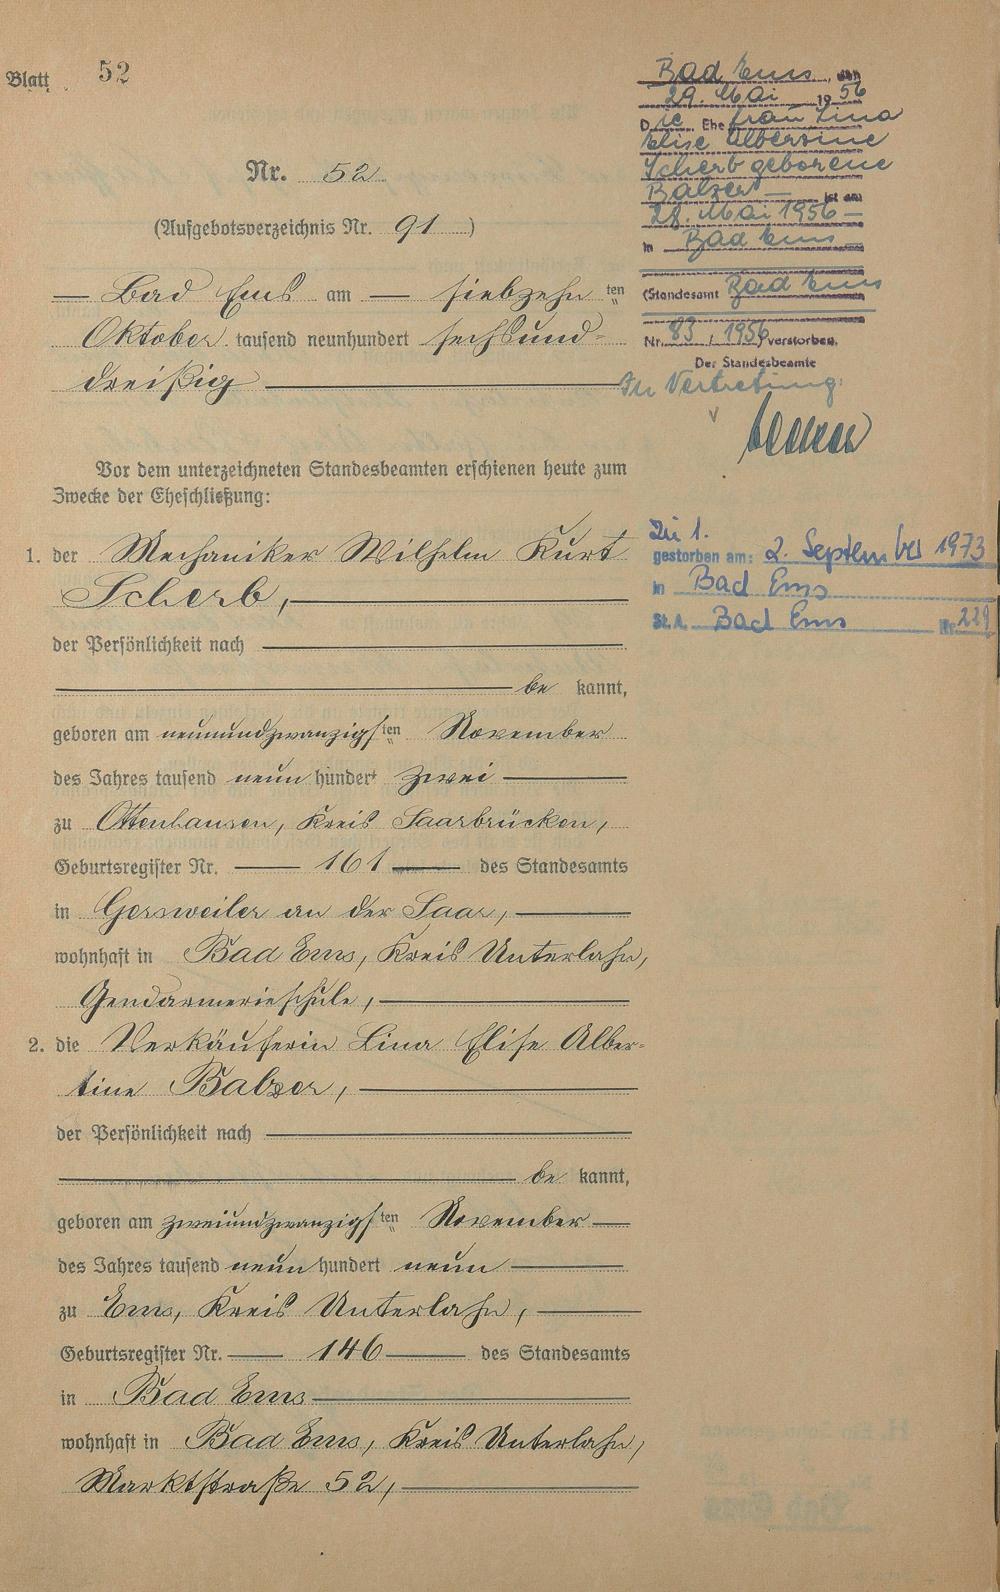 Blatt 52
Nr. 52
(Aufgebotsverzeichnis Nr. 91)
Bad Ems am siebzehnten
Oktober tausend neunhundert sechsund-
dreißig
Vor dem unterzeichneten Standesbeamten erschienen heute zum
Zwecke der Eheschließung:
1. der Mechaniker Wilhelm Kurt
Scherb,
der Persönlichkeit nach
be kannt,
geboren am neunundzwanzigsten November
des Jahres tausend neun hundert zwei
zu Ottenhausen, Kreis Saarbrücken,
Geburtsregister Nr. 161 des Standesamts
in Gersweiler an der Saar,
wohnhaft in Bad Ems, Kreis Unterlahn,
Gendarmerieschule,
2. die Verkäuferin Lina Elise Alber-
tine Balzer,
der Persönlichkeit nach
be kannt,
geboren am zweiundzwanzigsten November
des Jahres tausend neun hundert neun
zu Ems, Kreis Unterlahn,
Geburtsregister Nr. 146 des Standesamts
in Bad Ems
wohnhaft in Bad Ems, Kreis Unterlahn,
Marktstraße 52,
Bad Ems, den
29. Mai 1956
Die Ehefrau Lina
Elise Albertine
Scherb geborene
Balzer ist am
28. Mai 1956
in Bad Ems
(Standesamt Bad Ems
Nr. 83 / 1956 verstorben.
Der Standesbeamte
In Vertretung:
Zu 1.
gestorben am: 2. September 1973
in Bad Ems
St.A. Bad Ems Nr. 229